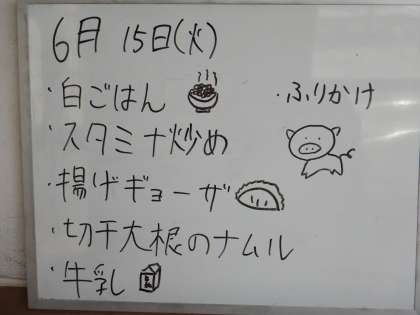 6月 15日(火)
・白ごはん
・ふりかけ
・スタミナ炒め
・揚げギョーザ
・切干大根のナムル
・牛乳